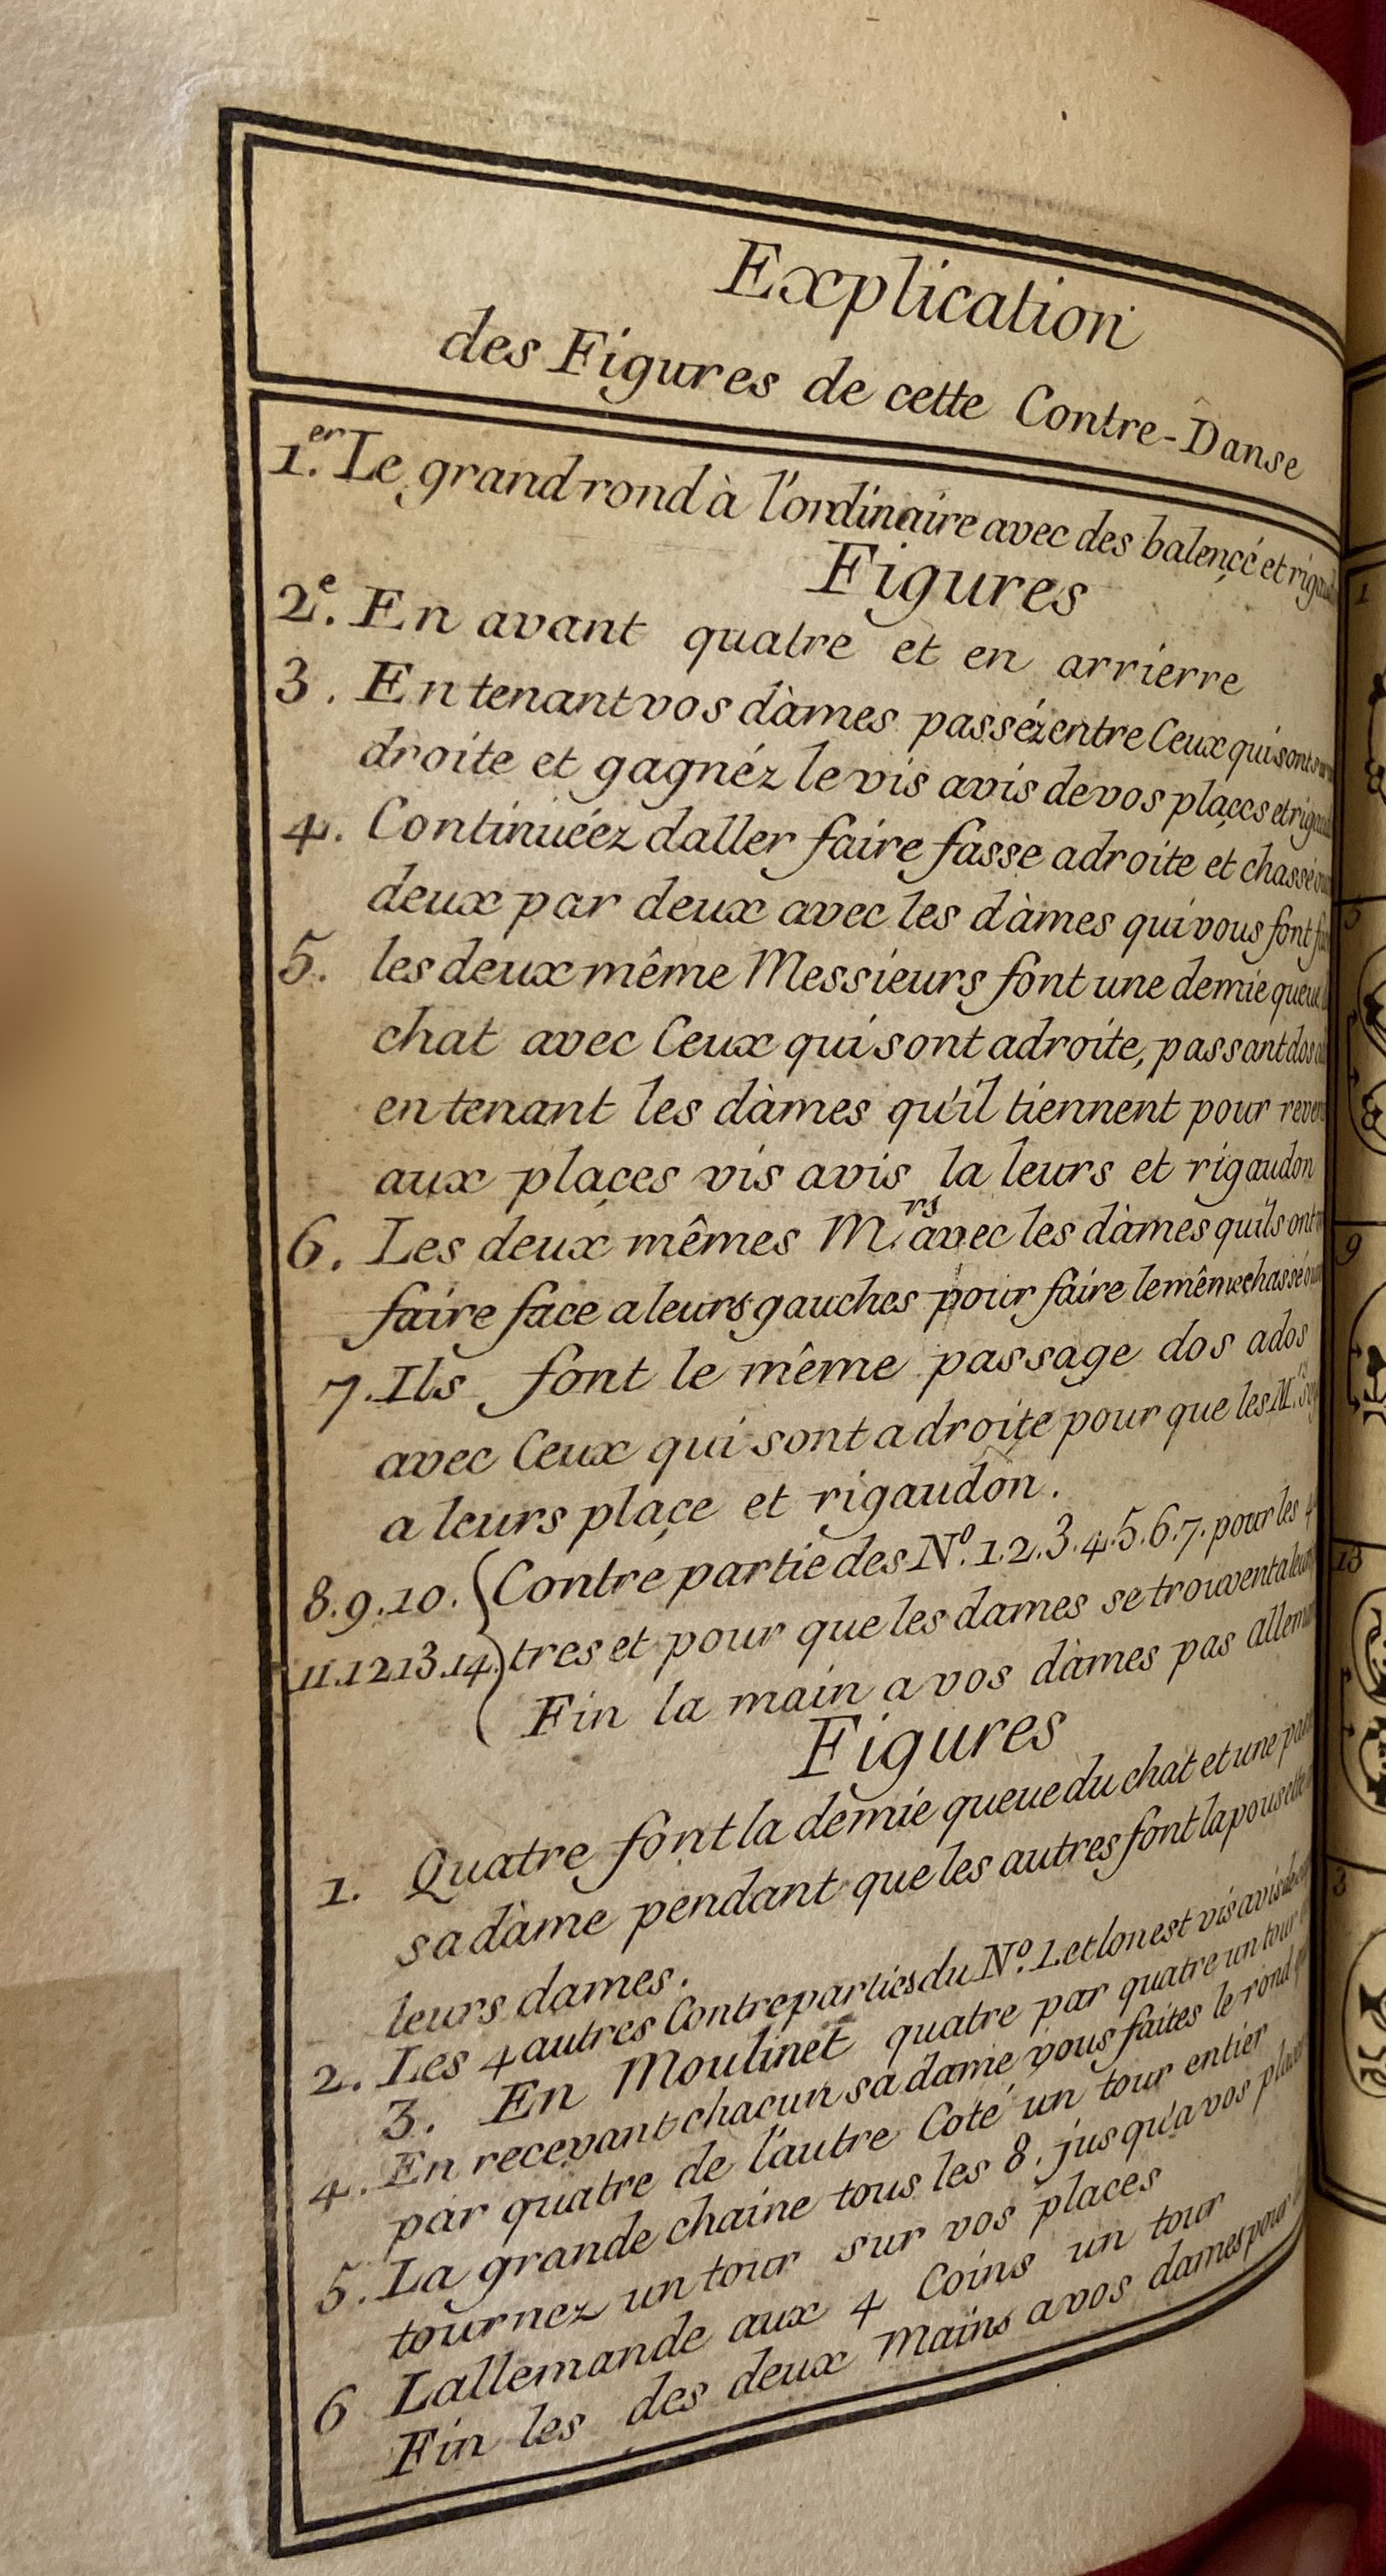 Explication
des Figures de cette Contre-Danse
1.er Le grand rond à l'ordinaire avec des balençé et
Figures
2e. En avant quatre et en arrierre
3. En tenant vos dàmes passéz entre Ceux qui sont
droite et gagnéz le vis avis de vos plaçes et
4. Continuéez daller faire fasse adroite et chassé
deux par deux avec les dàmes qui vous font
5. les deux même Messieurs font une demie queue
chat avec Ceux qui sont adroite, passant dos
en tenant les dàmes qu'il tiennent pour
aux plaçes vis avis la leurs et rigaudon
6. Les deux mêmes M.rs avec les dàmes quils ont
faire face a leurs gauches pour faire le même chassé
7. Ils font le même passage dos ados
avec Ceux qui sont a droite pour que les M.rs
a leurs plaçe et rigaudon.
8.9.10. Contre partie des No. 1.2.3.4.5.6.7. pour les
11.12.13.14. tres et pour que les dames se trouvent
Fin la main a vos dàmes pas
Figures
1. Quatre font la demie queue du chat et une
sa dàme pendant que les autres font la
leurs dames.
2. Les 4 autres Contreparties du No. 1. et lon est vis avis
3. En Moulinet quatre par quatre un tour
4. En recevant chacun sa dame vous faites le rond
par quatre de l'autre Coté un tour entier
5. La grande chaine tous les 8. jusqu'a vos
tournez un tour sur vos places
6 Lallemande aux 4 Coins un tour
Fin les des deux Mains a vos dames pour
1
9
13
3